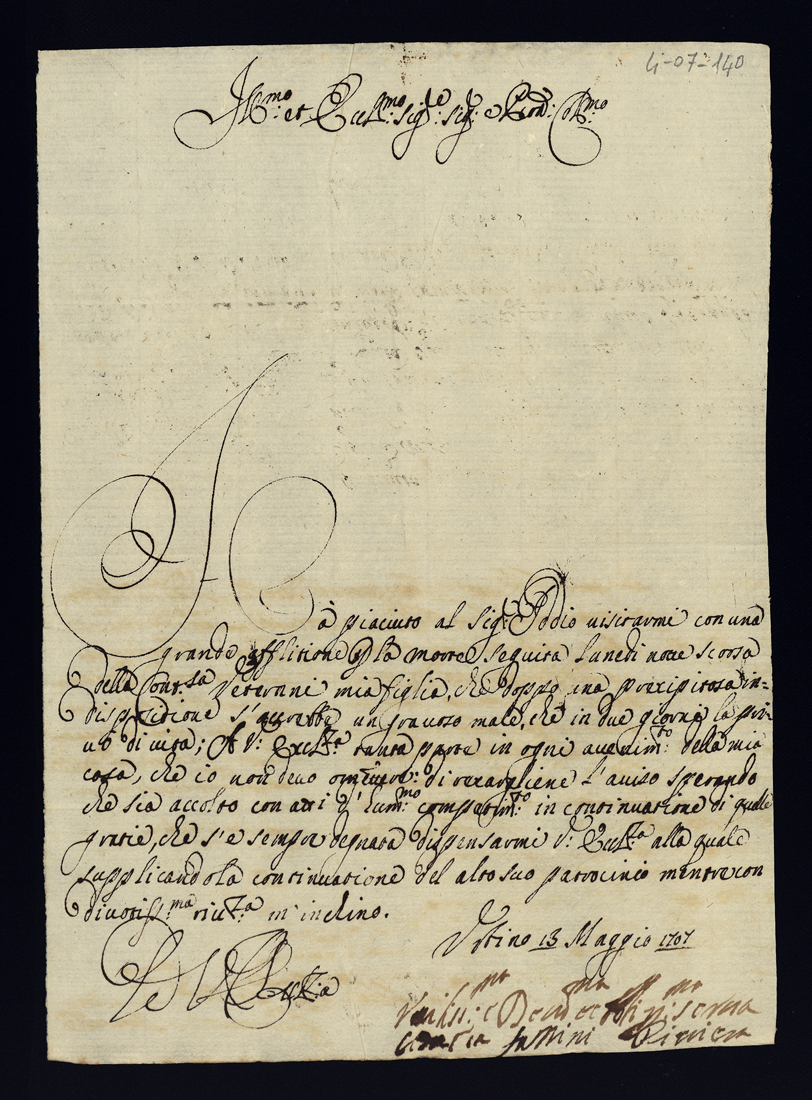 4-07-140
Ill:mo et Ecc:mo sig:re sig:re e Pron: Col:mo
Hà piaciuto al Sig:re Iddio visitarmi con una
grande afflitione p la morte seguita lunedi notte scorsa
della Cont:sa Veterani mia figlia, che doppo una precipitosa in=
dispositione s'accrebbe un gravoso male, che in due giorni la pri=
vò di vita; A V: Ecc:za tanta parte in ogni avenim:to della mia
casa, che io non devo di recargliene l'aviso sperando
che sia accolto con atti d' hum:mo compatim:to in continuatione di quelle
gratie, che s'è sempre degnata dispensarmi V: Ecc:za alla quale
supplicandola continuatione del alto suo patrocinio mentre con
divotiss:ma riv:za m'inchino.
Di V Ecc:za
Urbino 13 Maggio 1707